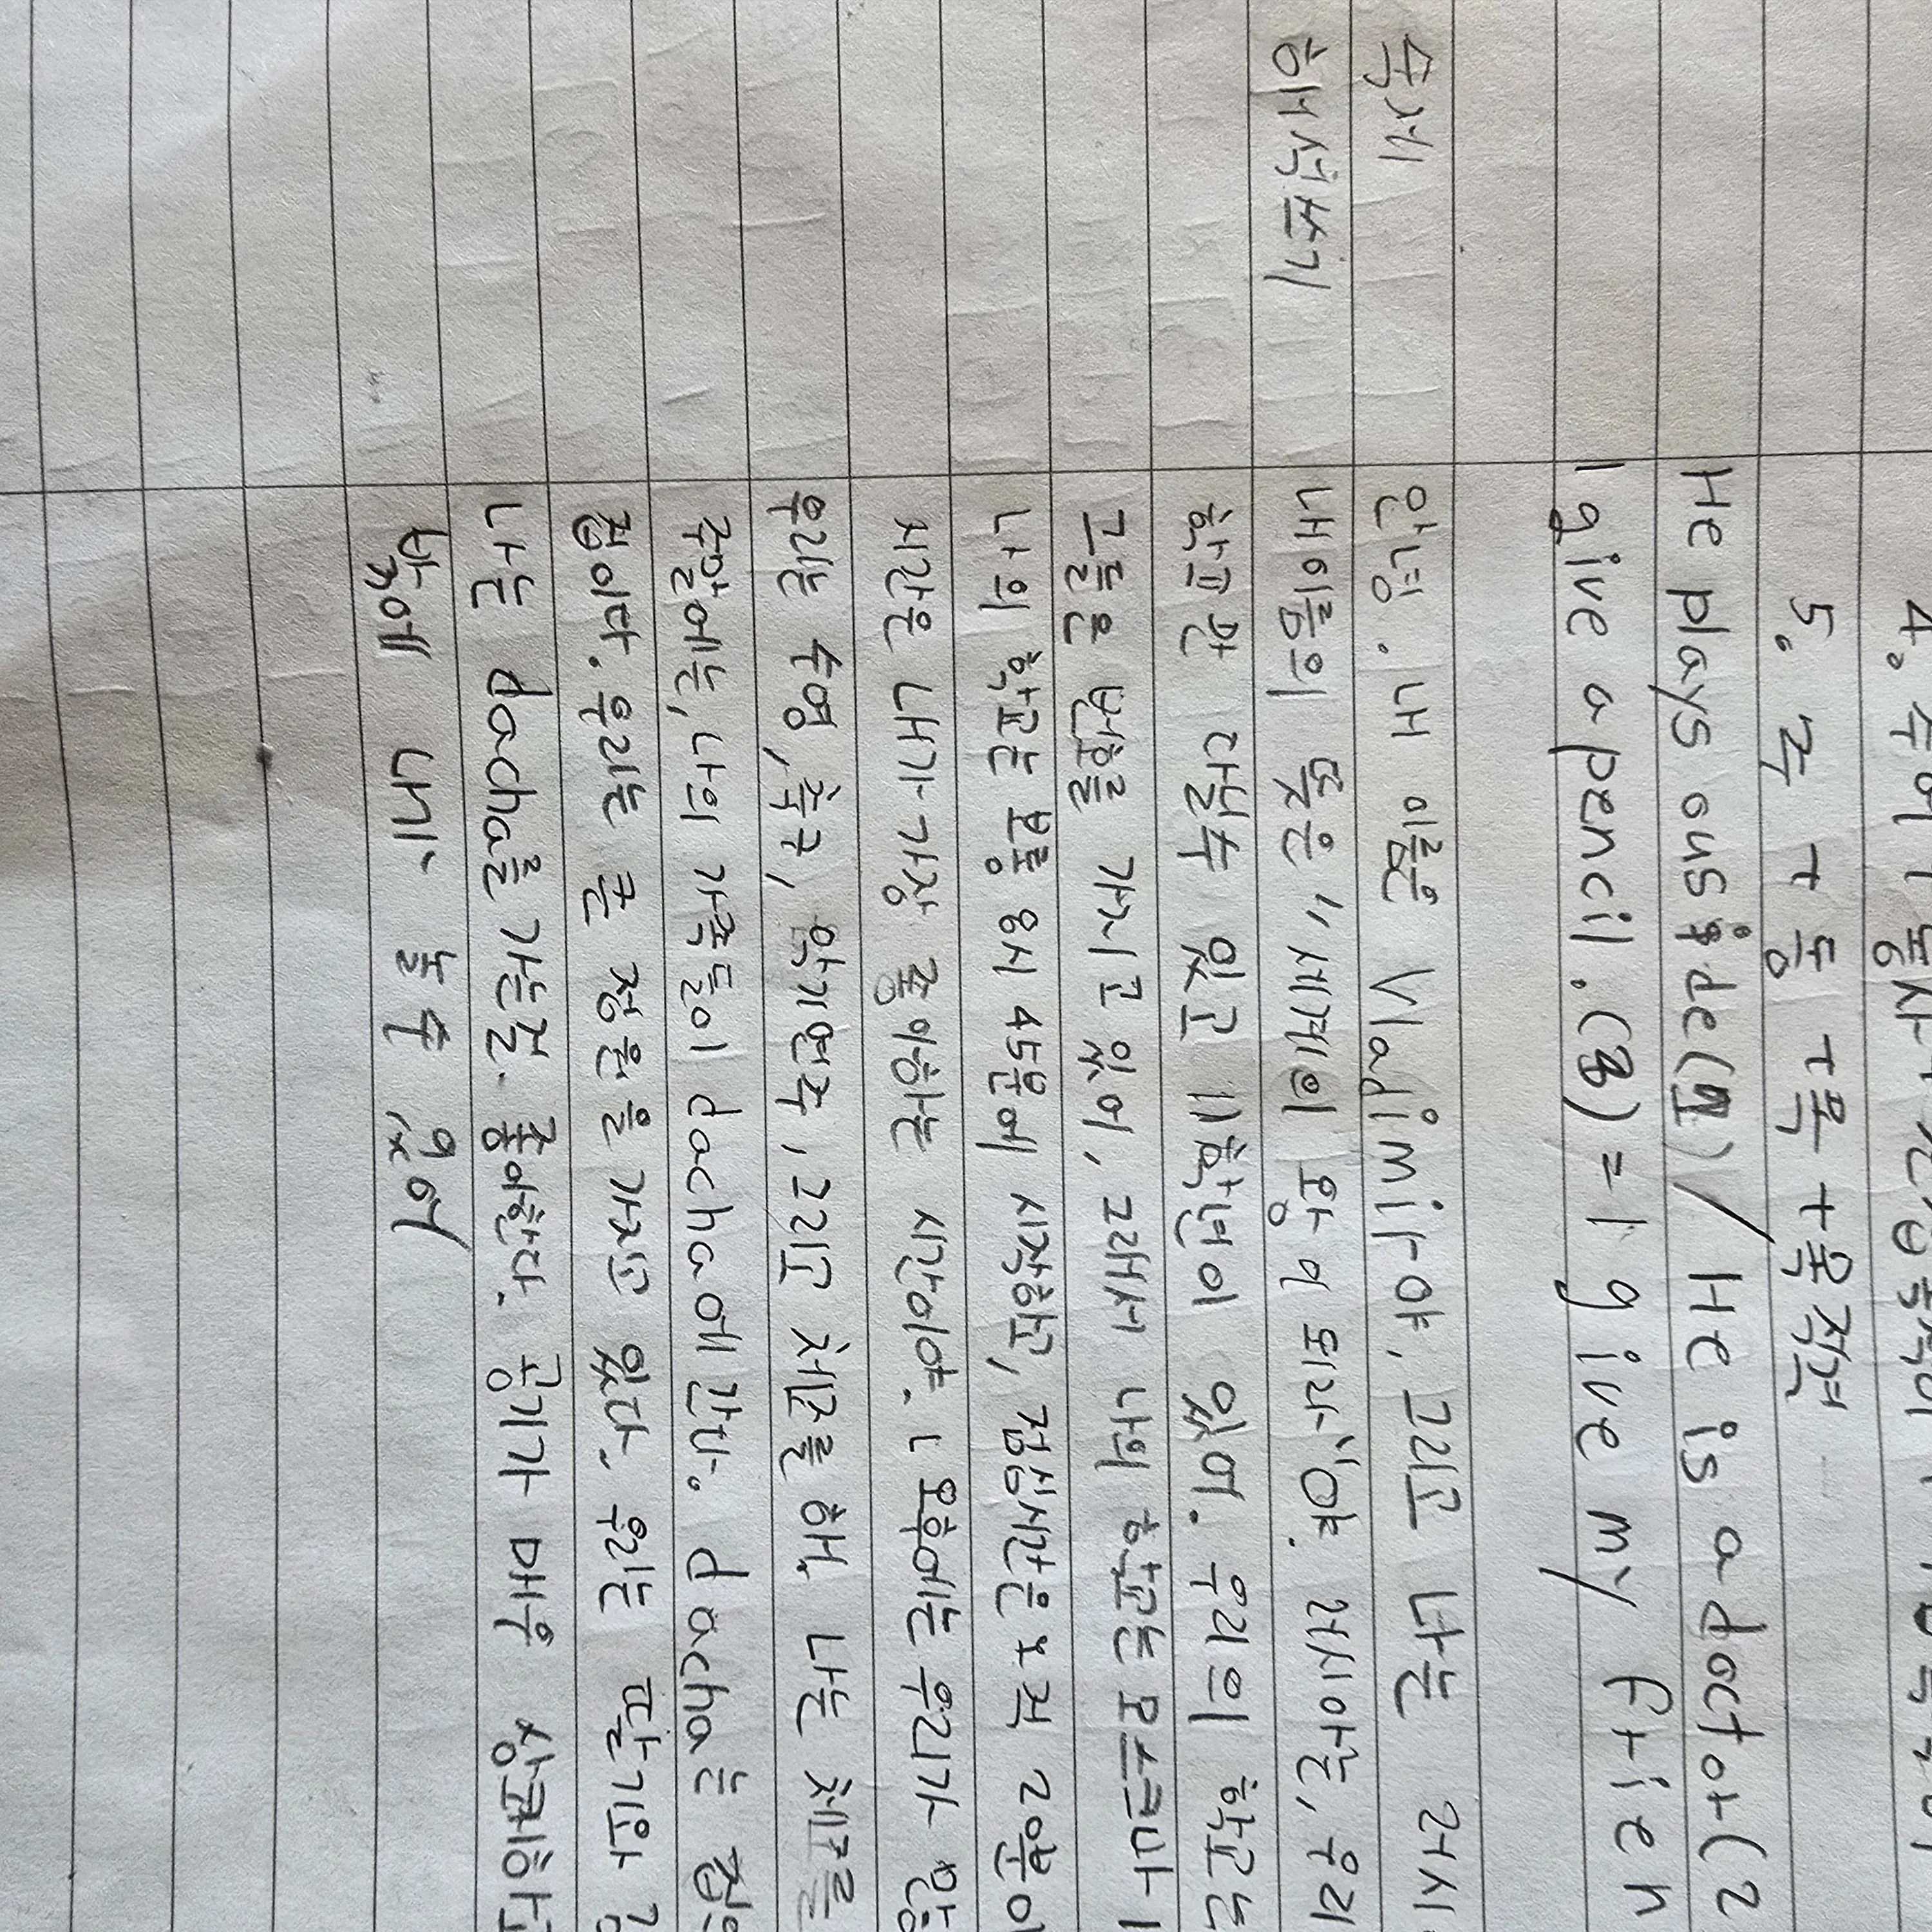 4. 주어 + 동사
5. 주 + 동 + 목 + 목적격
He plays outside(1) / He is a doctor(2
I give a pencil.(3) = I give my frien
숙제 안녕. 내 이름은 Vladimir야. 그리고 나는 러시
해석쓰기 내이름의 뜻은 "세계의 왕이 되라"야. 러시아는, 우리
학교만 다닐수 있고 11학년이 있어. 우리의 학교는
그들은 번호를 가지고 있어, 그래서 나의 학교는 모스크바
나의 학교는 보통 8시 45분에 시작하고, 점심시간은 오직 20분이
시간은 내가 가장 좋아하는 시간이야. 오후에는 우리가 많
우리는 수영, 축구, 악기연주, 그리고 체스를 해. 나는 체스를
주말에는, 나의 가족들이 dacha에 간다. dacha는
집이다. 우리는 큰 정원을 가지고 있다. 우리는 딸기와
나는 dacha를 가는것 좋아한다. 공기가 매우 상쾌하
밖에 내가 놀수 있어